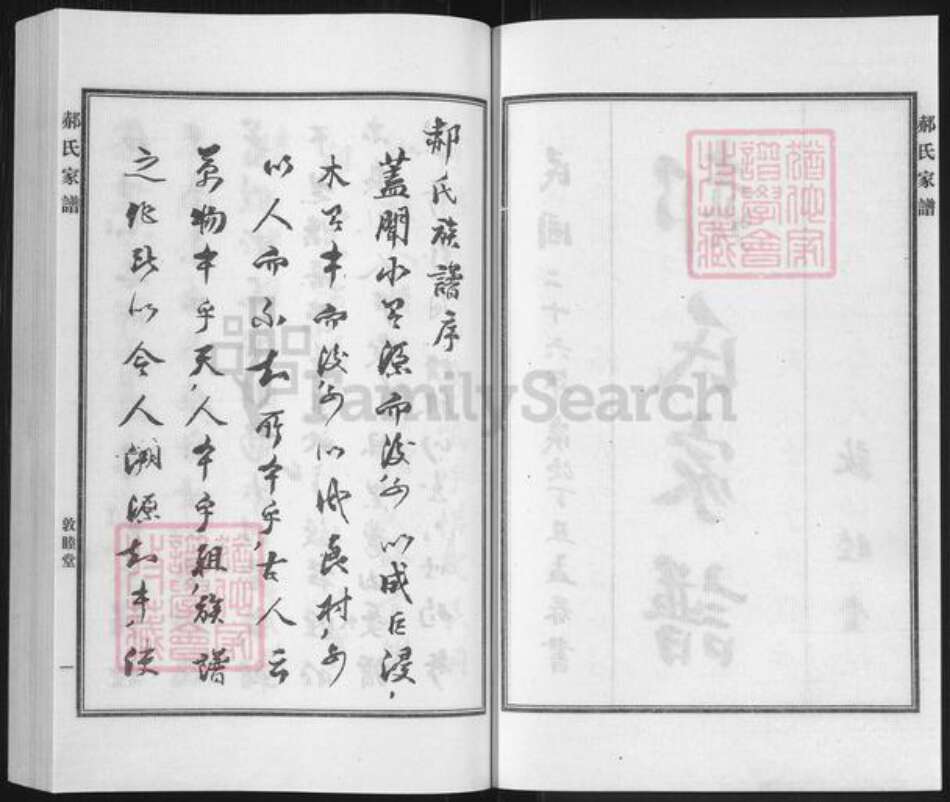 郝氏家譜
郝氏族譜序
蓋聞水有源而後可以成巨浸，
木有本而後可以成良材，可
以人而不知所本乎，古人云
萬物本乎天，人本乎祖，族譜
之作，所以令人溯源知本，使
敦睦堂
一
郝氏家譜
猶他家
譜學會
珍藏
猶他家
譜學會
珍藏
FamilySearch